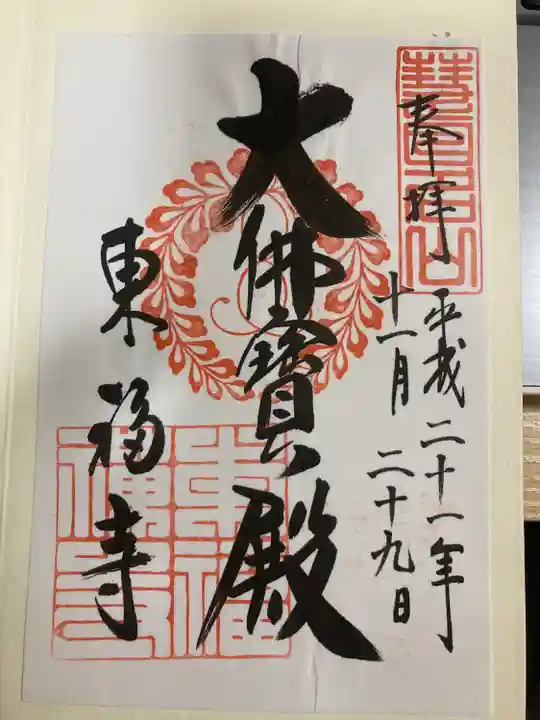 奉拝
平成二十一年
十一月二十九日
大佛寶殿
東福寺
慧日山
東福禅寺